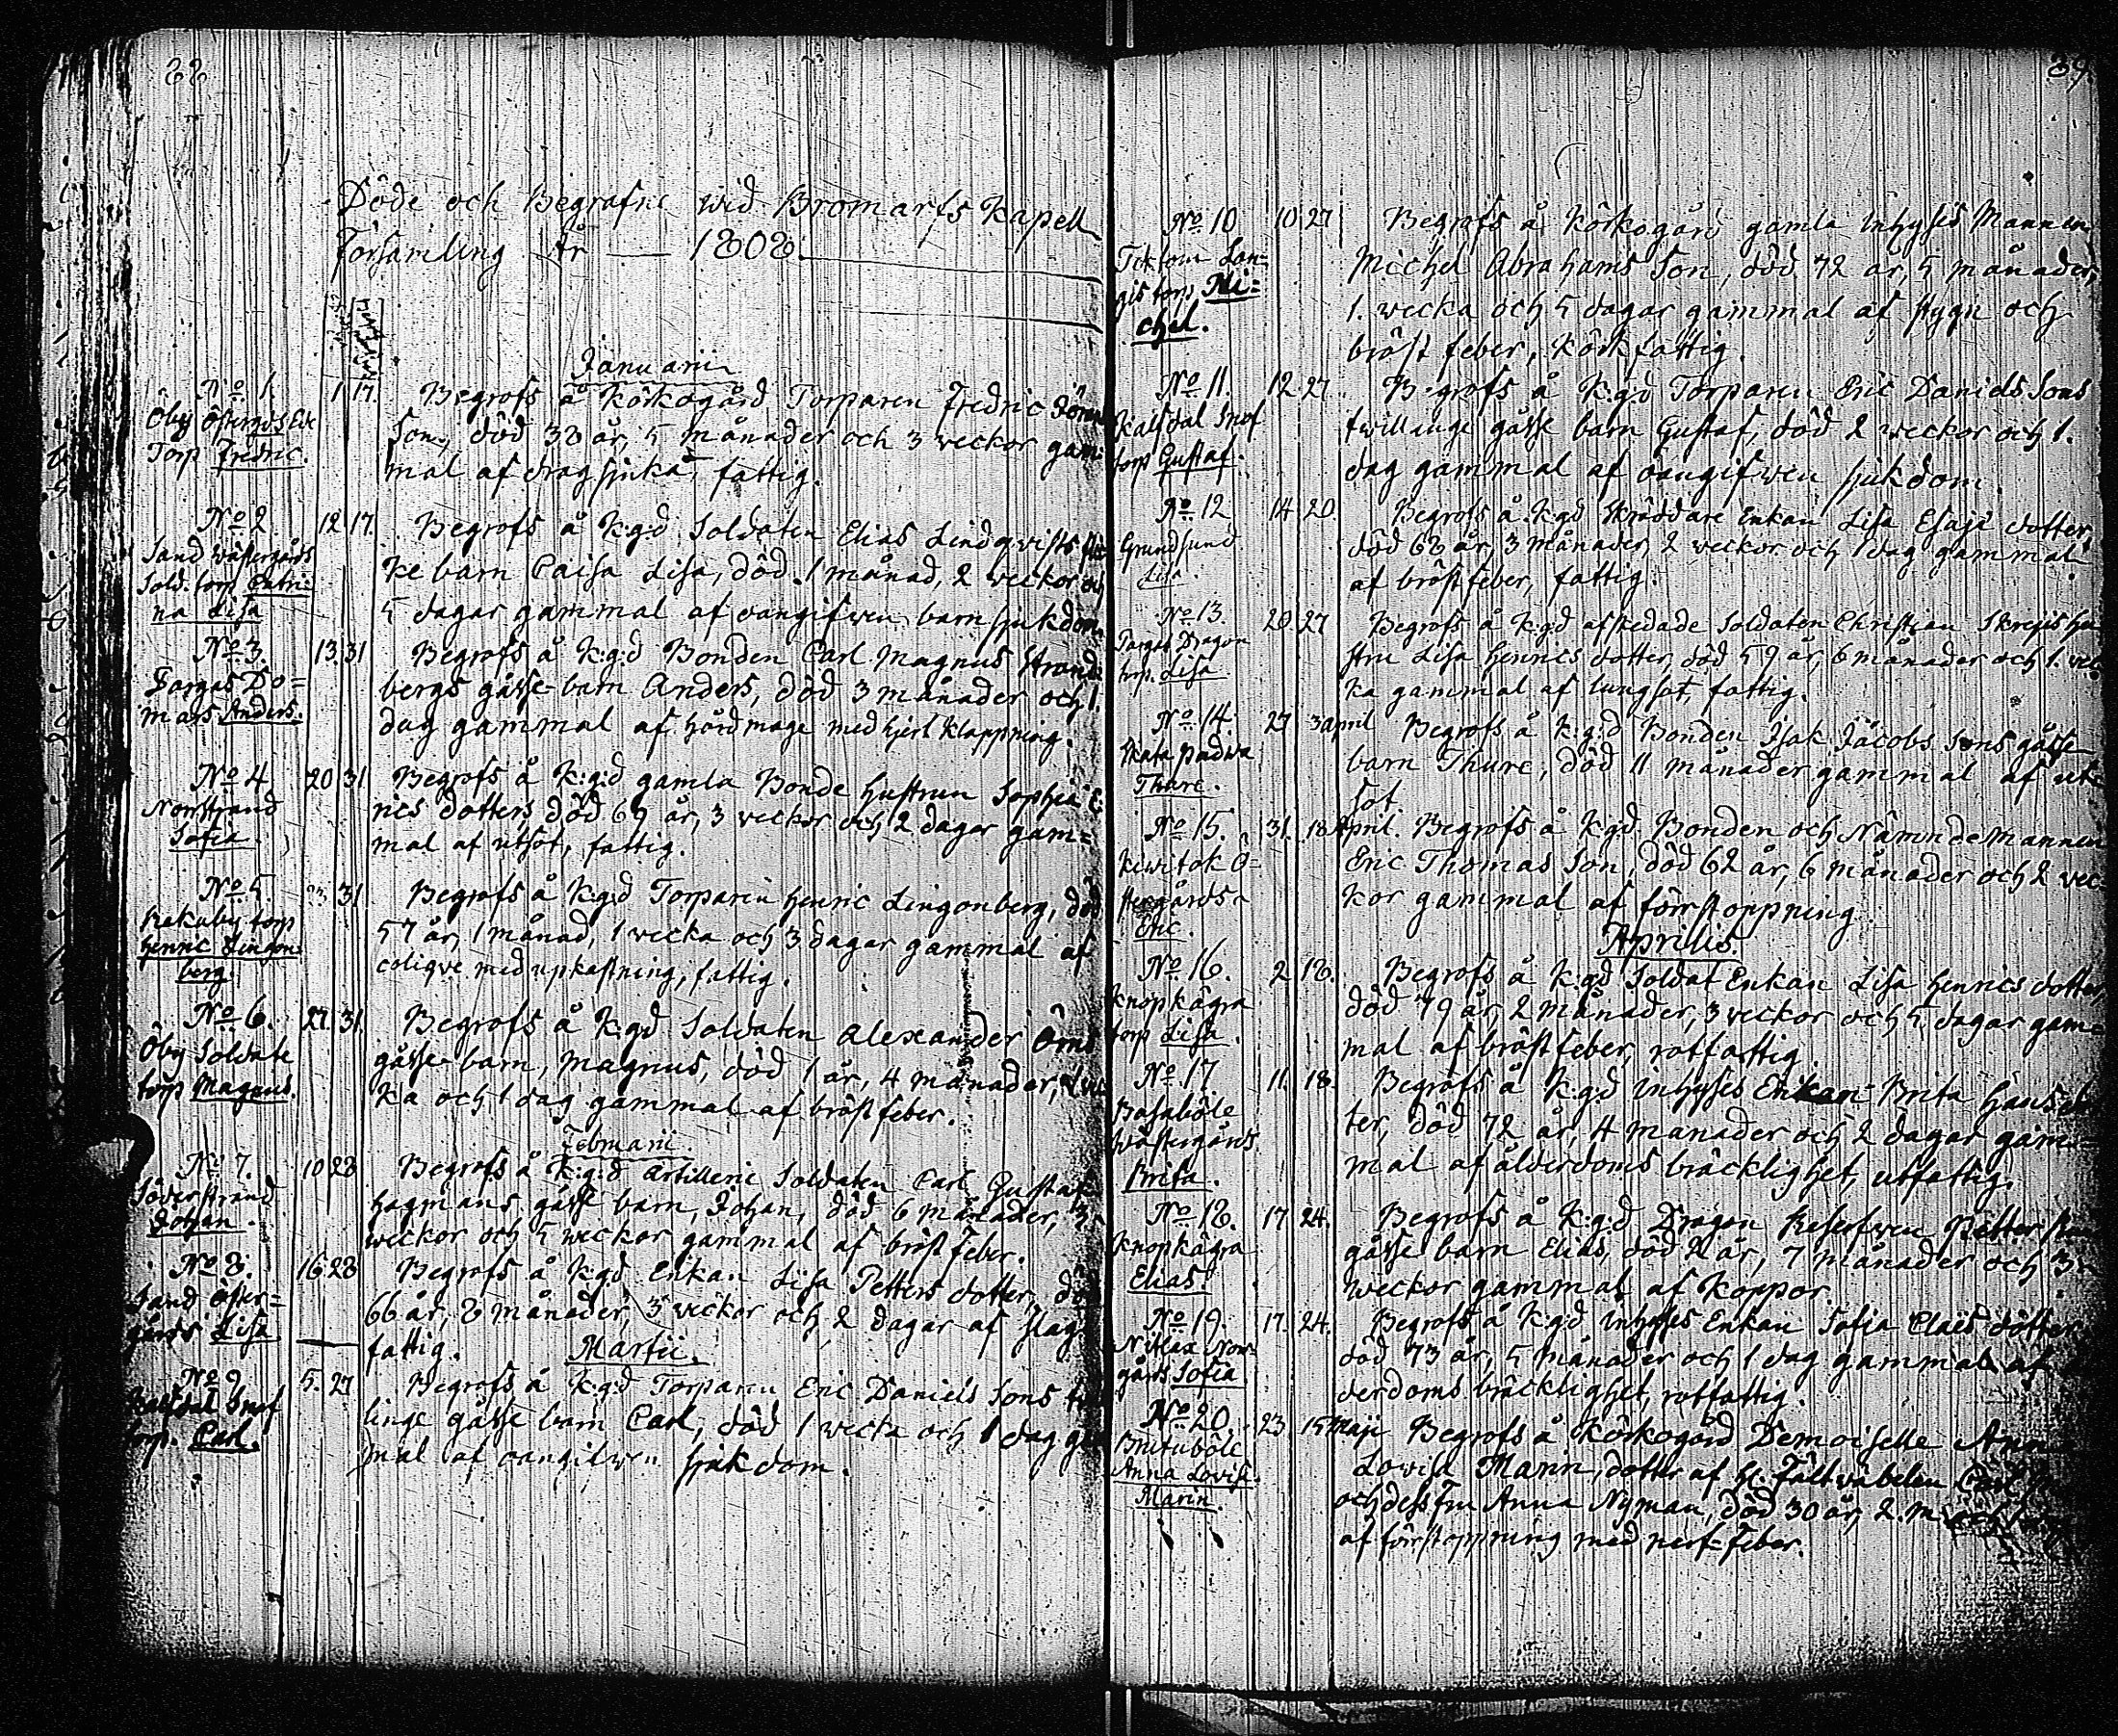 88
Döde och Begrafne wid Bromarfs Kapell
Församling År 1808.
Januarii
No 1.
Öby
Torp Fredric.
1 17.
Begrofs å Körkogård Torparen Fredric
Son, död 38 år, 5 månader och 3 weckor gam-
mal af dragsjuka, fattig.
No 2
Sand Wästergårds
Sold. torp Catri-
na Lisa
12 17.
Begrofs å K:g:d Soldaten Elias Lindqvists
ke barn Caisa Lisa, död 1 månad, 2 weckor och
5 dagar gammal af oangifwen barnsjukdom.
No 3.
Targas Do-
mars Anders.
13. 31
Begrofs å K:g:d Bonden Carl Magnus Strand-
bergs gåsse-barn Anders, död 3 månader och 1.
dag gammal af hård mage med hjert klappning.
No 4
Norrstrand
Sofia.
20 31
Begrofs å K:g:d gamla Bonde hustrun Sophia
nes dotters död 69 år, 3 weckor och 2 dagar gam-
mal af utsot, fattig.
No 5.
torp
Henric Lingon-
berg.
31
Begrofs å K:g:d Torparen Henric Lingonberg, död
57 år, 1 månad, 1 wecka och 3 dagar gammal af
coliqve med upkastning, fattig.
No 6.
Öby Soldate
torp Magnus.
27. 31.
Begrofs å K:g:d Soldaten Alexander Öms
gåsse-barn, Magnus, död 1 år, 4 månader,
ka och 1 dag gammal af bröstfeber.
Februarii
No 7.
Söderstrand
Johan.
10 28
Begrofs å K:g:d Artillerie Soldaten Carl Gustaf
Hagmans, gåsse barn, Johan, död 6 månader, 3
weckor och 5 weckor gammal af bröstfeber.
No 8.
Sand Öster-
gårds Lisa
16 28
Begrofs å K:g:d Enkan Lisa Petters dotter, död
66 år, 8 månader, 3 weckor och 2 dagar af slag
fattig.
Martii.
No 9
Kalfdal
torp. Carl.
5. 27
Begrofs å K:g:d Torparen Eric Daniels Sons
linge gåsse barn Carl, död 1 wecka och 1 dag
mal af oangifwen sjukdom.
89
No 10
torp Mi-
chel.
10 27
Begrofs å Körkogård gamla Inhyses Mannen
Michel Abrahams Son, död 72 år, 5 månader,
1. wecka och 5 dagar gammal af stygn och
bröst feber, Körkfattig.
No 11.
Kalfdal
torp Gustaf.
12 27
Begrofs å K:g:d Torparen Eric Daniels Sons
twillinge gåsse barn Gustaf, död 2 weckor och 1.
dag gammal af oangifwen sjukdom.
No 12
Grundsund
Lisa.
14 20
Begrofs å K:g:d Skräddare Enkan Lisa Esaje dotter,
död 68 år, 3 månader, 2 weckor och 1 dag gammal
af bröstfeber, fattig.
No 13.
Targas Dragon
torp. Lisa
20 27
Begrofs å K:g:d afskedade Soldaten Christian
stru Lisa Henrics dotter, död 59 år, 6 månader och 1.
ka gammal af lungsot, fattig.
No 14.
Skata
Thure.
27 3 april
Begrofs å K:g:d Bonden Isak Jacobs Sons gåsse
barn Thure, död 11 månader gammal af
sot.
No 15.
Kiwitok Ö-
stergårds
Eric.
31. 18 April.
Begrofs å K:g:d Bonden och Nämndemannen
Eric Thomas Son, död 62 år, 6 månader och 2 wec-
kor gammal af förstoppning.
Aprilis
No 16.
Knopkägra
torp Lisa.
2 18.
Begrofs å K:g:d Soldat Enkan Lisa Henrics dotter,
död 79 år, 2 månader, 3 weckor och 5 dagar gam-
mal af bröstfeber, rotfattig.
No 17
Wästergårds
Brita.
11. 18.
Begrofs å K:g:d Inhyses Enkan Brita Hans
ter, död 72 år, 4 månader och 2 dagar gam-
mal af ålderdoms bräcklighet, utfattig.
No 18.
Knopkägra
Elias.
17 24.
Begrofs å K:g:d Dragon Reserfwen Petter
gåsse barn Elias, död 2 år, 7 månader och 3
weckor gammal af Koppor.
No 19.
Nor-
gårds Sofia
17. 24.
Begrofs å K:g:d Inhyses Enkan Sofia Claes dotter
död 73 år, 5 månader och 1 dag gammal af
derdoms bräcklighet, rotfattig.
No 20.
Anna Lovisa
Marin.
23. 15 Maji
Begrofs å Körkogård Demoiselle Anna
Lovisa Marin, dotter af H: Fältwäbelen Carl
och dess fru Anna Nyman, död 30 år, 2. m.
af förstoppning med nerf-feber.